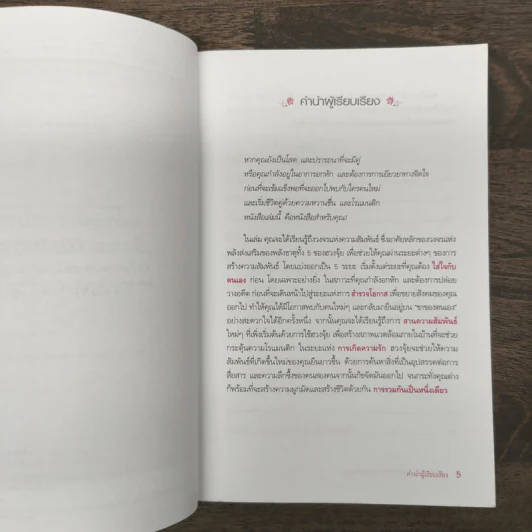 คำนำผู้เรียบเรียง
หากคุณยังเป็นโสด และปรารถนาที่จะมีคู่
หรือคุณกำลังอยู่ในอาการอกหัก และต้องการการเยียวยาทางจิตใจ
ก่อนที่จะเข้มแข็งพอที่จะออกไปพบกับใครคนใหม่
และเริ่มชีวิตคู่ด้วยความหวานชื่น และโรแมนติก
หนังสือเล่มนี้ คือหนังสือสำหรับคุณ!
ในเล่ม คุณจะได้เรียนรู้ถึงวงจรแห่งความสัมพันธ์ ซึ่งอาศัยหลักของวงจรแห่ง
พลังส่งเสริมของพลังธาตุทั้ง 5 ของฮวงจุ้ย เพื่อช่วยให้คุณผ่านระยะต่างๆ ของการ
สร้างความสัมพันธ์ โดยแบ่งออกเป็น 5 ระยะ เริ่มตั้งแต่ระยะที่คุณต้อง ใส่ใจกับ
ตนเอง ก่อน โดยเฉพาะอย่างยิ่ง ในสภาวะที่คุณกำลังอกหัก และต้องการปล่อย
วางอดีต ก่อนที่จะเดินหน้าไปสู่ระยะแห่งการ สำรวจโอกาส เพื่อขยายสังคมของคุณ
ออกไป ทำให้คุณได้มีโอกาสพบกับคนใหม่ๆ และกลับมายืนอยู่บน "ขาของตนเอง"
อย่างสะดวกใจได้อีกครั้งหนึ่ง จากนั้นคุณจะได้เรียนรู้ถึงการ สานความสัมพันธ์
ใหม่ๆ ที่เพิ่งเริ่มต้นด้วยการใช้ฮวงจุ้ย เพื่อสร้างสภาพแวดล้อมภายในบ้านที่จะช่วย
กระตุ้นความโรแมนติก ในระยะแห่ง การเกิดความรัก ฮวงจุ้ยจะช่วยให้ความ
สัมพันธ์ที่เกิดขึ้นใหม่ของคุณยืนยาวขึ้น ด้วยการค้นหาสิ่งที่เป็นอุปสรรคต่อการ
สื่อสาร และความลึกซึ้งของคนสองคนจากนั้นก็ขจัดมันออกไป จนกระทั่งคุณต่าง
ก็พร้อมที่จะสร้างความผูกมัดและสร้างชีวิตด้วยกัน การรวมกันเป็นหนึ่งเดียว
คำนำผู้เรียบเรียง 5